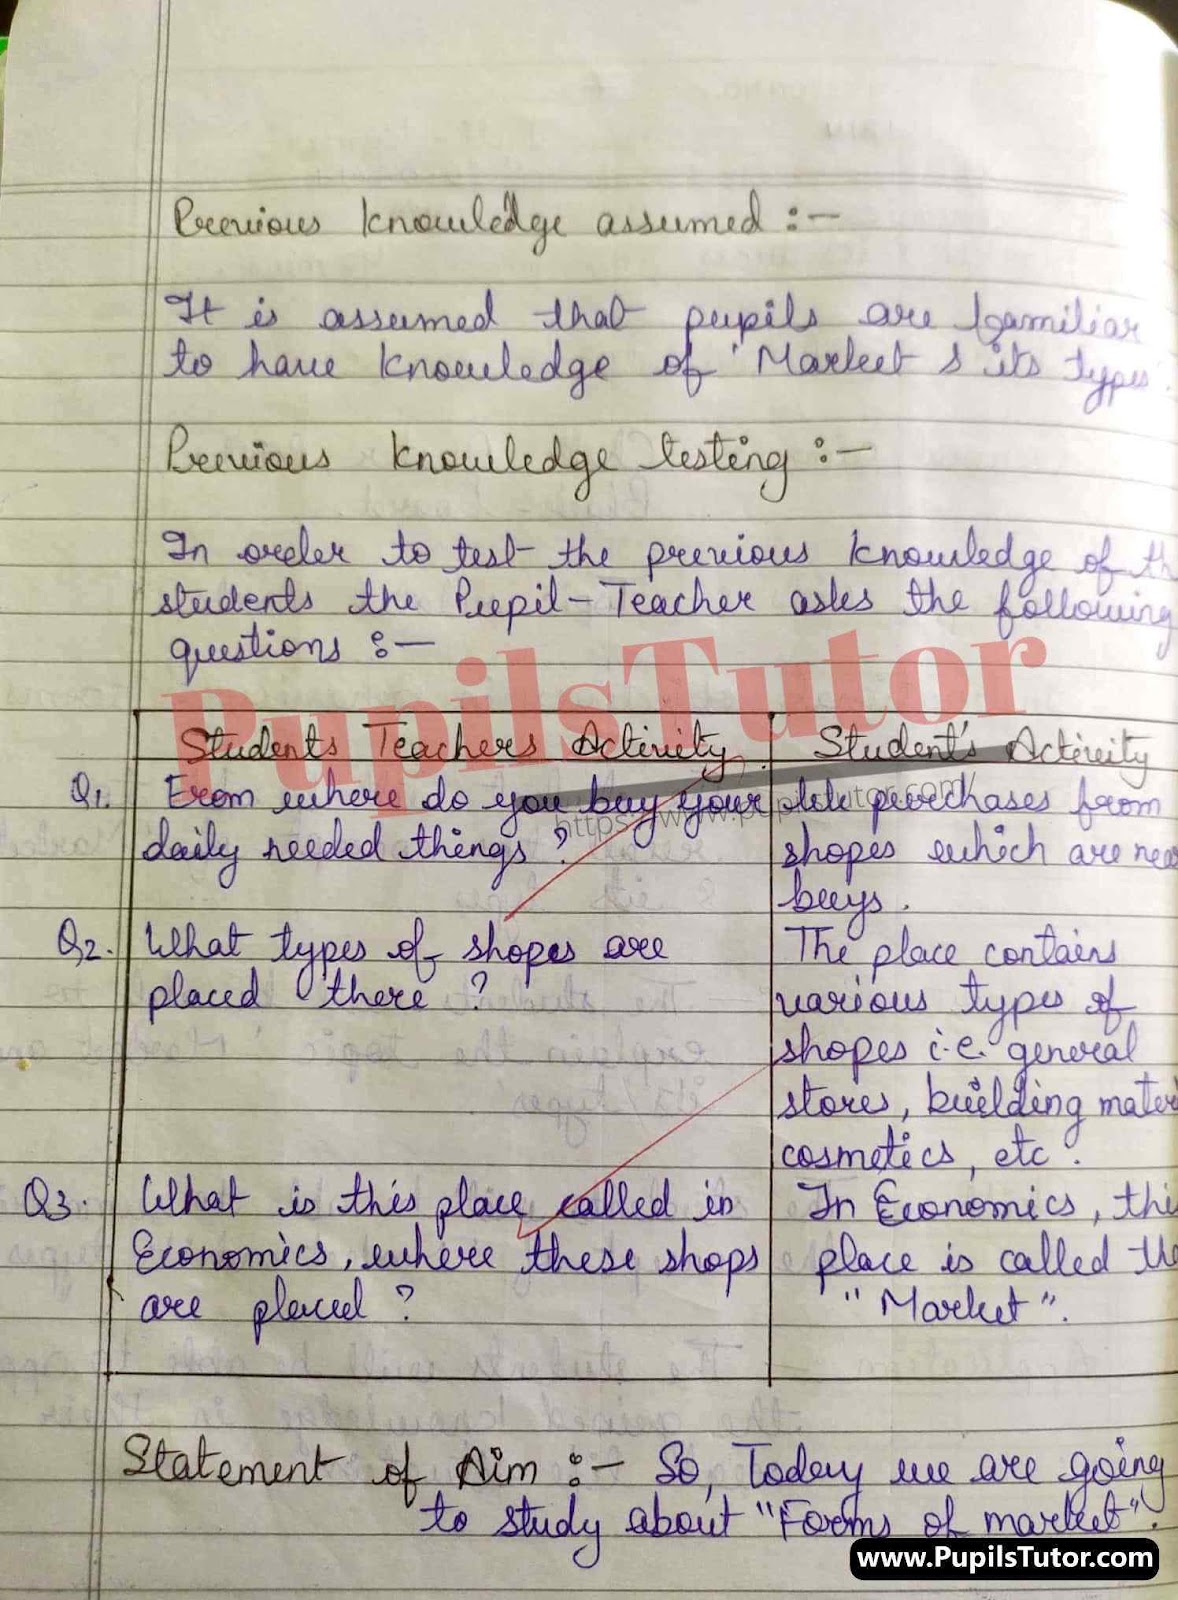 Previous knowledge assumed :-
It is assumed that pupils are familiar
to have knowledge of 'Market & its types'.
Previous knowledge testing :-
In order to test the previous knowledge of th
students the Pupil-Teacher asks the following
questions :-
PupilsTutor
Students Teachers Activity
Student's Activity
Q1. From where do you buy your
daily needed things ?
purchases from
shopes which are near
buys.
Q2. What types of shopes are
placed there ?
The place contains
various types of
shopes i.e. general
stores, building materi
cosmetics, etc.
Q3. What is this place called in
Economics, where these shops
are placed ?
In Economics, this
place is called the
"Market".
Statement of Aim :- So, Today we are going
to study about "Forms of market".
www.PupilsTutor.com